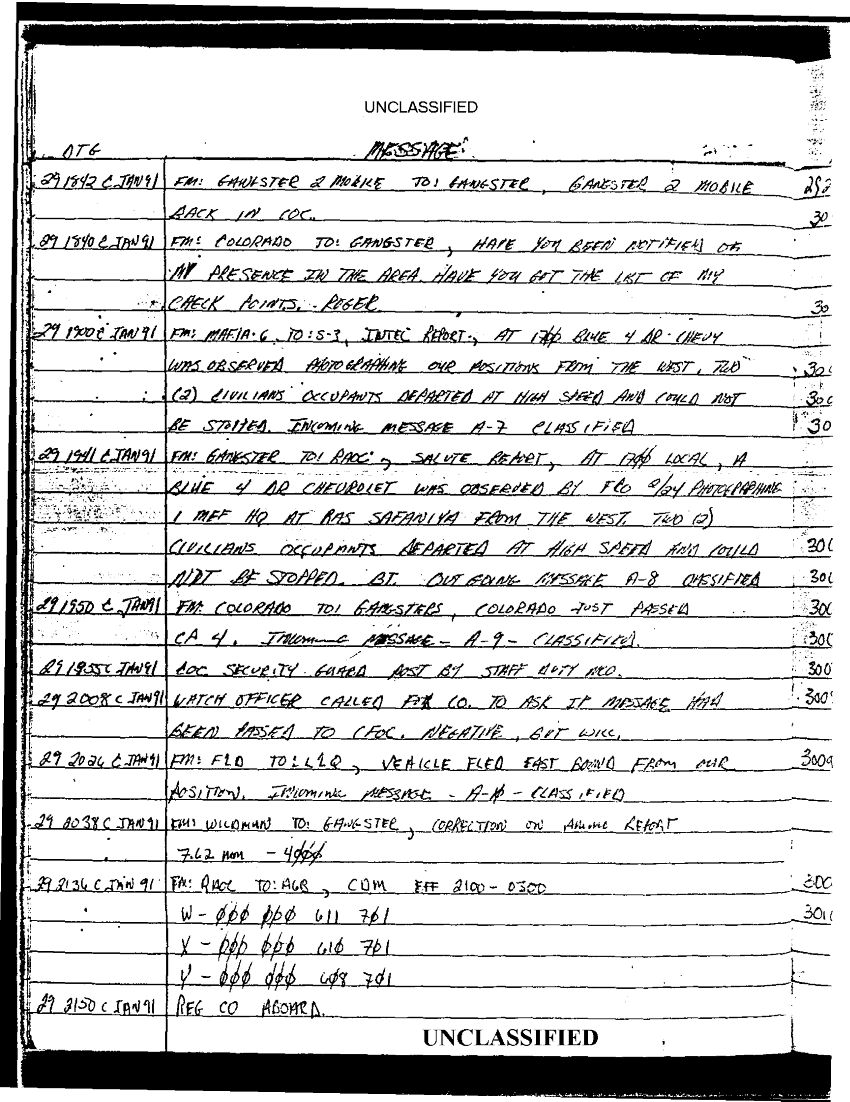 UNCLASSIFIED
DTG MESSAGE:
29 1842 C JAN 91 FM: GANGSTER 2 MOBILE TO: GANGSTER, GANGSTER 2 MOBILE
BACK IN COC.
29 1840 C JAN 91 FM: COLORADO TO: GANGSTER, HAVE YOU BEEN NOTIFIED OF
MY PRESENCE IN THE AREA. HAVE YOU GOT THE LIST OF MY
CHECK POINTS. ROGER.
29 1900 C JAN 91 FM: MAFIA-6, TO: S-3, INTEL REPORT, AT 1700 BLUE 4 DR CHEVY
WAS OBSERVED PHOTOGRAPHING OUR POSITIONS FROM THE WEST, TWO
(2) CIVILIANS OCCUPANTS DEPARTED AT HIGH SPEED AND COULD NOT
BE STOPPED. INCOMING MESSAGE A-7 CLASSIFIED
29 1941 C JAN 91 FM: GANGSTER TO: RAOC, SALUTE REPORT, AT 1700 LOCAL, A
BLUE 4 DR CHEVROLET WAS OBSERVED BY 2/24 PHOTOGRAPHING
I MEF HQ AT RAS SAFANIYA FROM THE WEST. TWO (2)
CIVILIANS OCCUPANTS DEPARTED AT HIGH SPEED AND COULD
NOT BE STOPPED. BT. OUT GOING MESSAGE A-8 CLASSIFIED
29 1950 C JAN 91 FM: COLORADO TO: GANGSTERS, COLORADO JUST PASSED
CP 4. INCOMING MESSAGE - A-9 - CLASSIFIED.
29 1955 C JAN 91 COC SECURITY GUARD POST BY STAFF DUTY NCO.
29 2008 C JAN 91 WATCH OFFICER CALLED CO. TO ASK IF MESSAGE HAD
BEEN PASSED TO CFOC. NEGATIVE, BUT WILL.
29 2026 C JAN 91 FM: F1D TO: L1Q, VEHICLE FLED EAST BOUND FROM OUR
POSITION. INCOMING MESSAGE - A-10 - CLASSIFIED
29 2038 C JAN 91 FM: WILDMAN TO: GANGSTER, CORRECTION ON AMMO REPORT
7.62 mm - 4000
29 2136 C JAN 91 FM: RAOC TO: AGR, CDM EFF 2100-0300
W - 000 000 611 701
X - 000 000 610 701
Y - 000 000 608 701
29 2150 C JAN 91 REG CO ABOARD.
UNCLASSIFIED